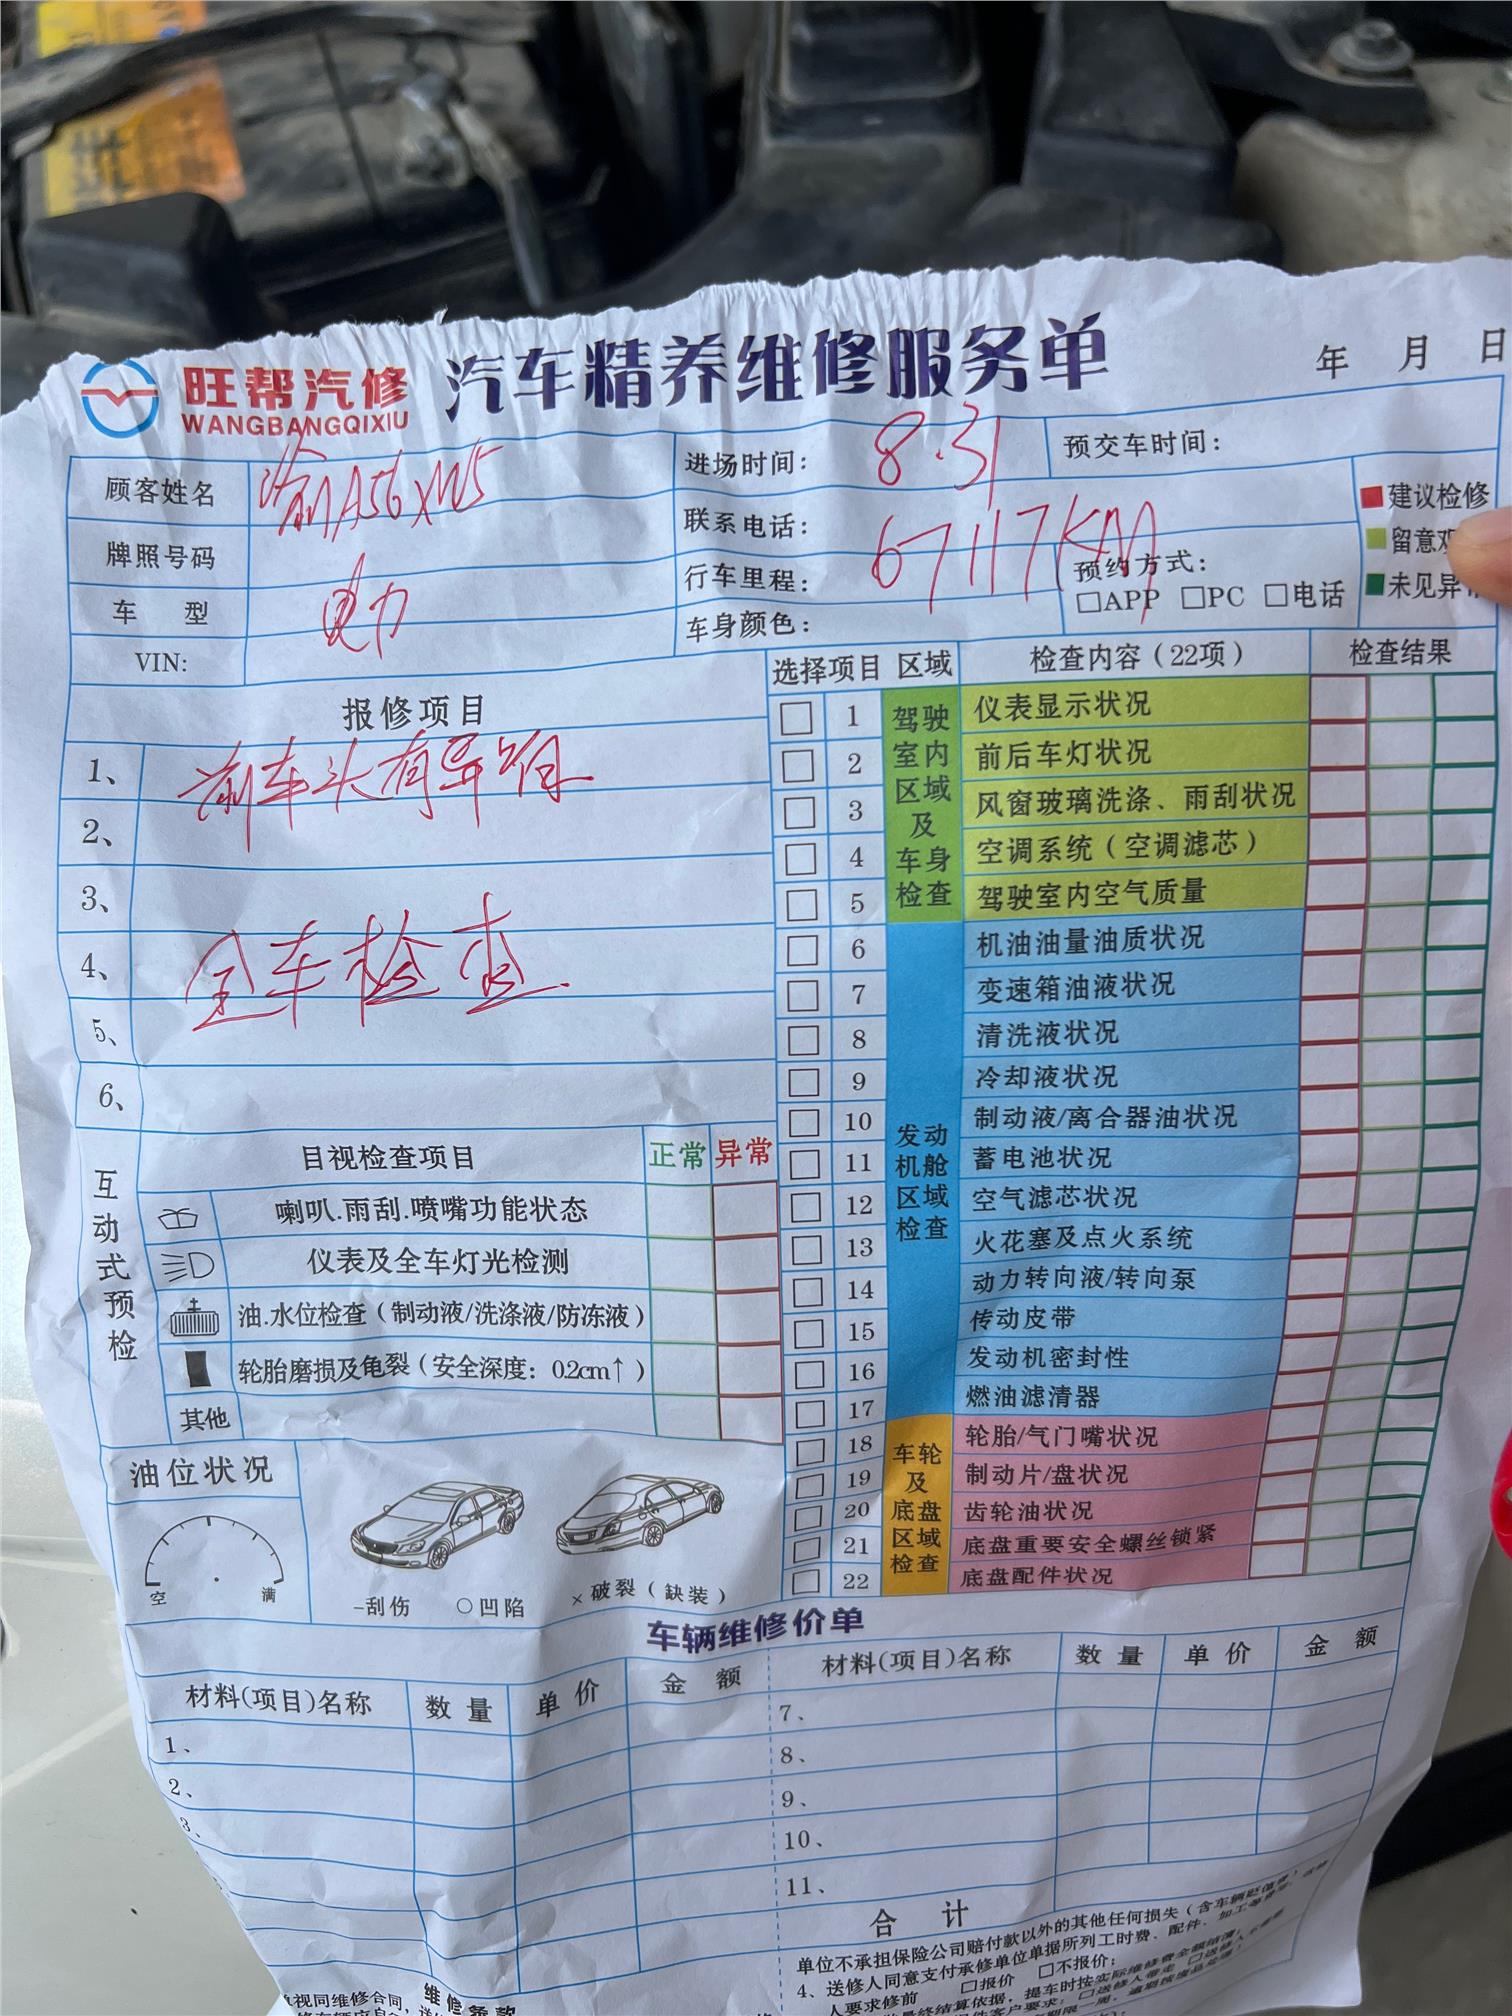 旺帮汽修
WANGBANGQIXIU
汽车精养维修服务单
年 月 日
顾客姓名
渝A56XW5
进场时间: 8.31
预交车时间:
牌照号码
联系电话:
行车里程: 67117KM
预约方式:
□APP □PC □电话
车 型
电力
车身颜色:
VIN:
建议检修
留意观
未见异常
报修项目
1、前车头有异响
2、
3、
4、全车检查
5、
6、
选择项目 区域 检查内容(22项) 检查结果
驾驶室内区域及车身检查
1 仪表显示状况
2 前后车灯状况
3 风窗玻璃洗涤、雨刮状况
4 空调系统(空调滤芯)
5 驾驶室内空气质量
发动机舱区域检查
6 机油油量油质状况
7 变速箱油液状况
8 清洗液状况
9 冷却液状况
10 制动液/离合器油状况
11 蓄电池状况
12 空气滤芯状况
13 火花塞及点火系统
14 动力转向液/转向泵
15 传动皮带
16 发动机密封性
17 燃油滤清器
车轮及底盘区域检查
18 轮胎/气门嘴状况
19 制动片/盘状况
20 齿轮油状况
21 底盘重要安全螺丝锁紧
22 底盘配件状况
互动式预检
目视检查项目 正常 异常
喇叭.雨刮.喷嘴功能状态
仪表及全车灯光检测
油.水位检查(制动液/洗涤液/防冻液)
轮胎磨损及龟裂(安全深度: 0.2cm↑)
其他
油位状况
空 满
-刮伤 ○凹陷 ×破裂(缺装)
车辆维修价单
材料(项目)名称 数量 单价 金额 材料(项目)名称 数量 单价 金额
1、 7、
2、 8、
3、 9、
10、
11、
合 计
单位不承担保险公司赔付款以外的其他任何损失(含车辆贬值费)
4、送修人同意支付承修单位单据所列工时费、配件、加工等费
人要求修前 □报价 □不报价;
维修条款
视同维修合同,